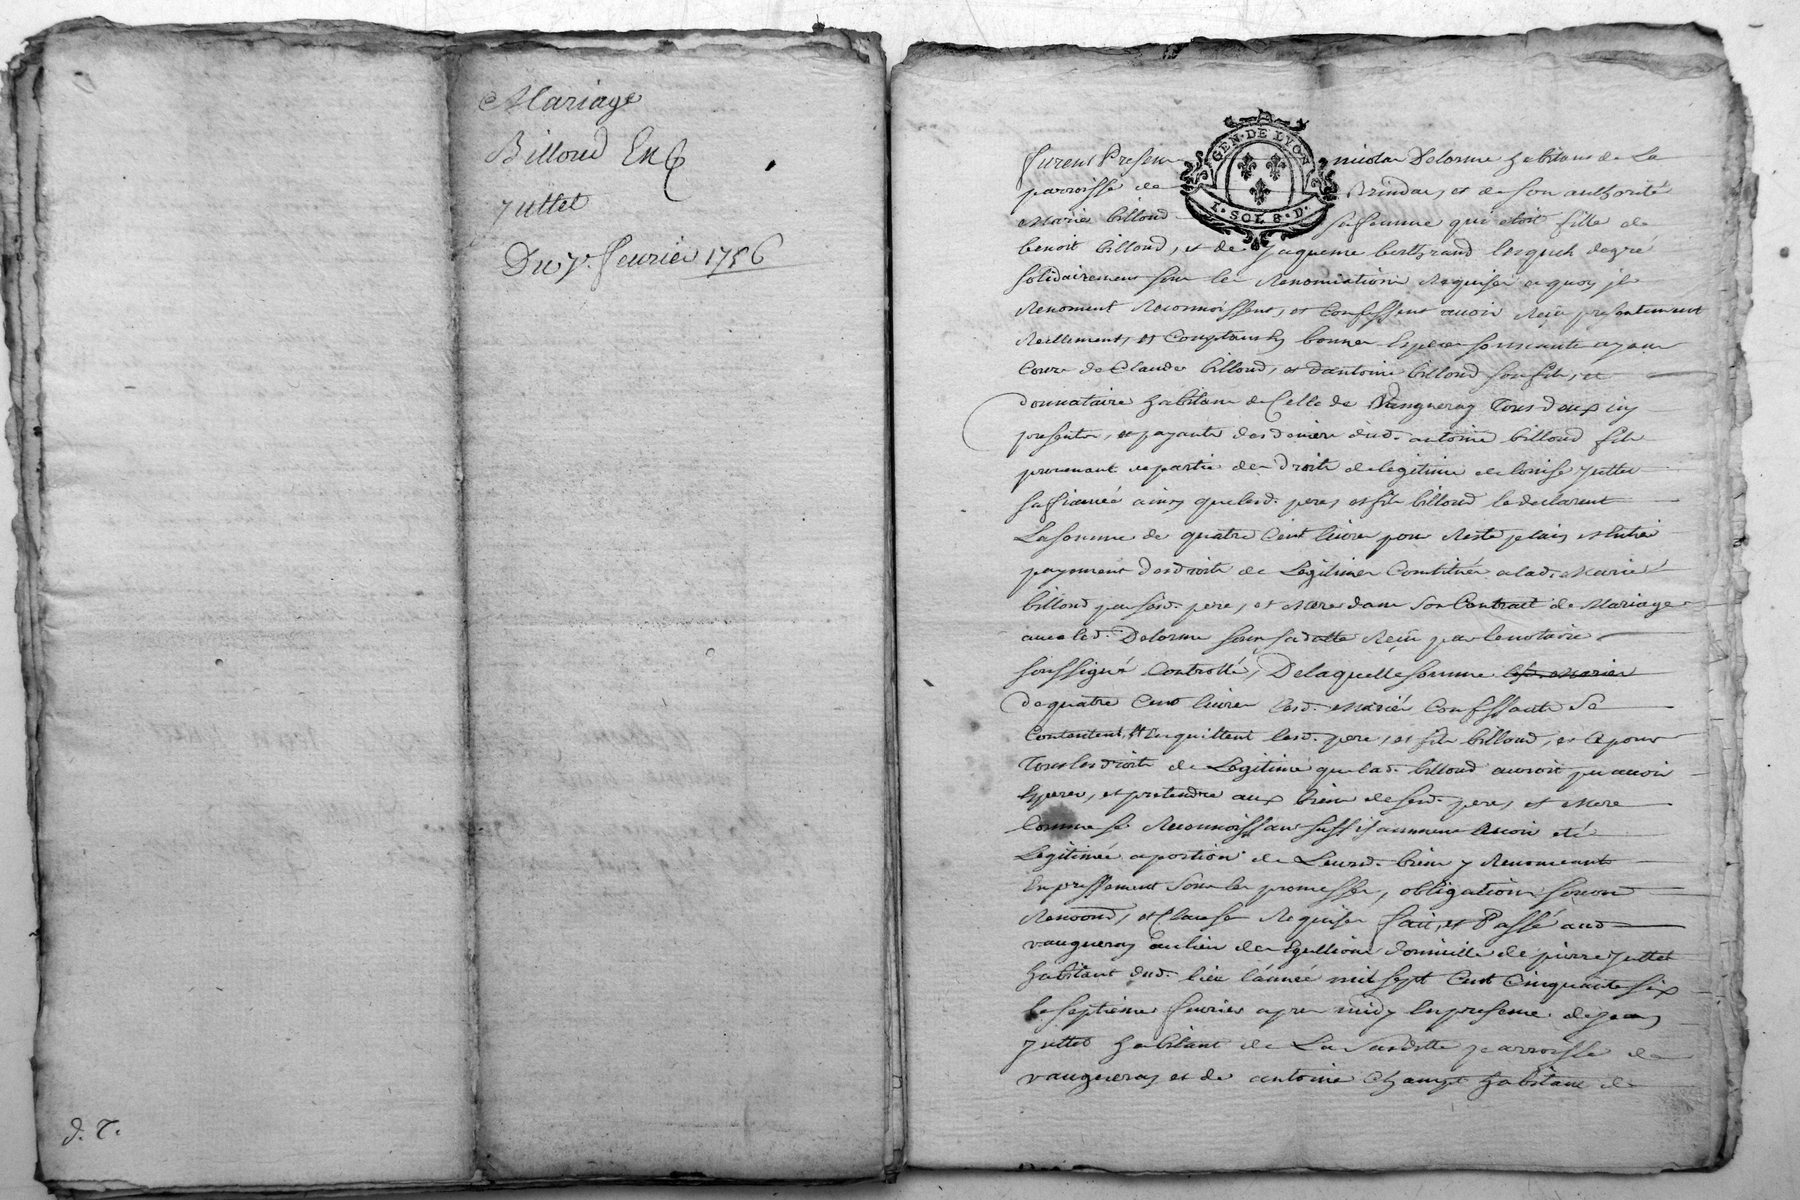 Mariage
Billoud Et
Juttet
Du 7e. feurier 1756
d. T.
GEN. DE LYON
1. SOL 8. D.
furent Presens nicolas Delorme habitans de La
parroisse de Brindas, et de son authorité
Marie billoud sa femme qui etoit fille de
benoit billoud, et de Jaqueme berthrand lesquels de gré
solidairement sous les Renonciations Requises a quoy ils
Renoncent Reconnoissent, et Confessent auoir Reçu presentement
Reellement, et Comptant en bonnes Especes sonnantes ayant
Cours de Claude billoud, et d'antoine billoud son fils, et
donnataire habitans de Celle de Vaugneray Tous deux icy
presents, et payants des deniers dud. antoine billoud fils
prouenant en partie des Droits de legitime de louise Juttet
sa fiancée ainsy que lesd. pere, et fils billoud le declarent
La somme de quatre Cent liures pour Reste plain et Entier
payement des droits de Legitimes Constitués a lad. Marie
billoud par sesd. pere, et Mere dans son Contract de Mariage
auec led. Delorme sous sa datte Reçu par le notaire
soussigné Controllé, De laquelle somme lesd. Mariés
de quatre Cent liures lesd. Mariés Confessants Se
Contentent, Et En quittent lesd. pere, et fils billoud, et Ce pour
Tous les droits de Legitime que lad. billoud auroit pu auoir
Esperer, et pretendre aux biens de sesd. pere, et Mere
Comme se Reconnoissant suffisamment Auoir eté
Legitimée a portion de Leursd. biens y Renonceant
Expressement sous les promesses, obligations
Renoond, et Clauses Requises fait, et Passé aud.
vaugneray au lieu des domicille de pierre Juttet
habitant dud. lieu l'année mil sept Cent Cinquante six
le septieme feurier apres midy En presence de Jean
Juttet habitant de La parroisse de
vaugneray et de antoine habitant de